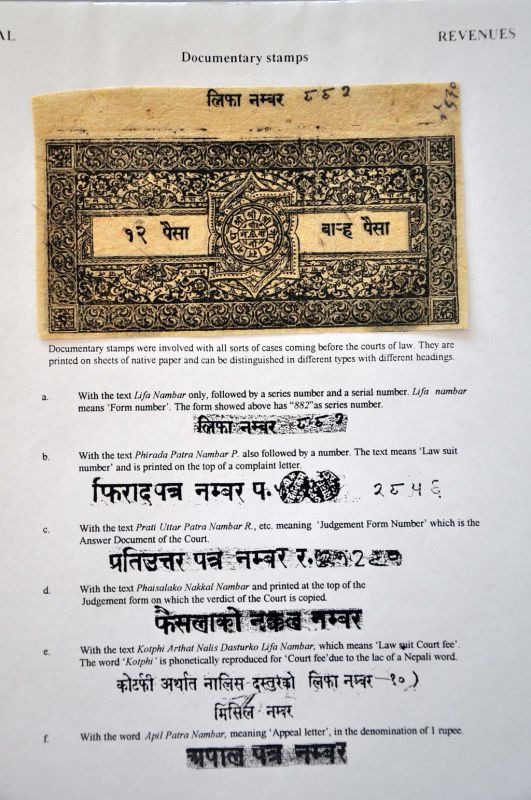 AL
REVENUES
Documentary stamps
लिफा नम्बर ८८२
१२ पैसा
बाऱ्ह पैसा
Documentary stamps were involved with all sorts of cases coming before the courts of law. They are
printed on sheets of native paper and can be distinguished in different types with different headings.
a. With the text Lifa Nambar only, followed by a series number and a serial number. Lifa nambar
means 'Form number'. The form showed above has "882"as series number.
लिफा नम्बर ८८२
b. With the text Phirada Patra Nambar P. also followed by a number. The text means 'Law suit
number' and is printed on the top of a complaint letter.
फिरादपत्र नम्बर प. २८५६
c. With the text Prati Uttar Patra Nambar R., etc. meaning 'Judgement Form Number' which is the
Answer Document of the Court.
प्रतिउत्तर पत्र नम्बर र.
d. With the text Phaisalako Nakkal Nambar and printed at the top of the
Judgement form on which the verdict of the Court is copied.
फैसलाको नक्कल नम्बर
e. With the text Kotphi Arthat Nalis Dasturko Lifa Nambar, which means 'Law suit Court fee'.
The word 'Kotphi' is phonetically reproduced for 'Court fee'due to the lac of a Nepali word.
कोर्टफी अर्थात नालिस-दस्तुरको लिफा नम्बर —१०)
मिसिल नम्बर
f. With the word Apil Patra Nambar, meaning 'Appeal letter', in the denomination of 1 rupee.
अपील पत्र नम्बर